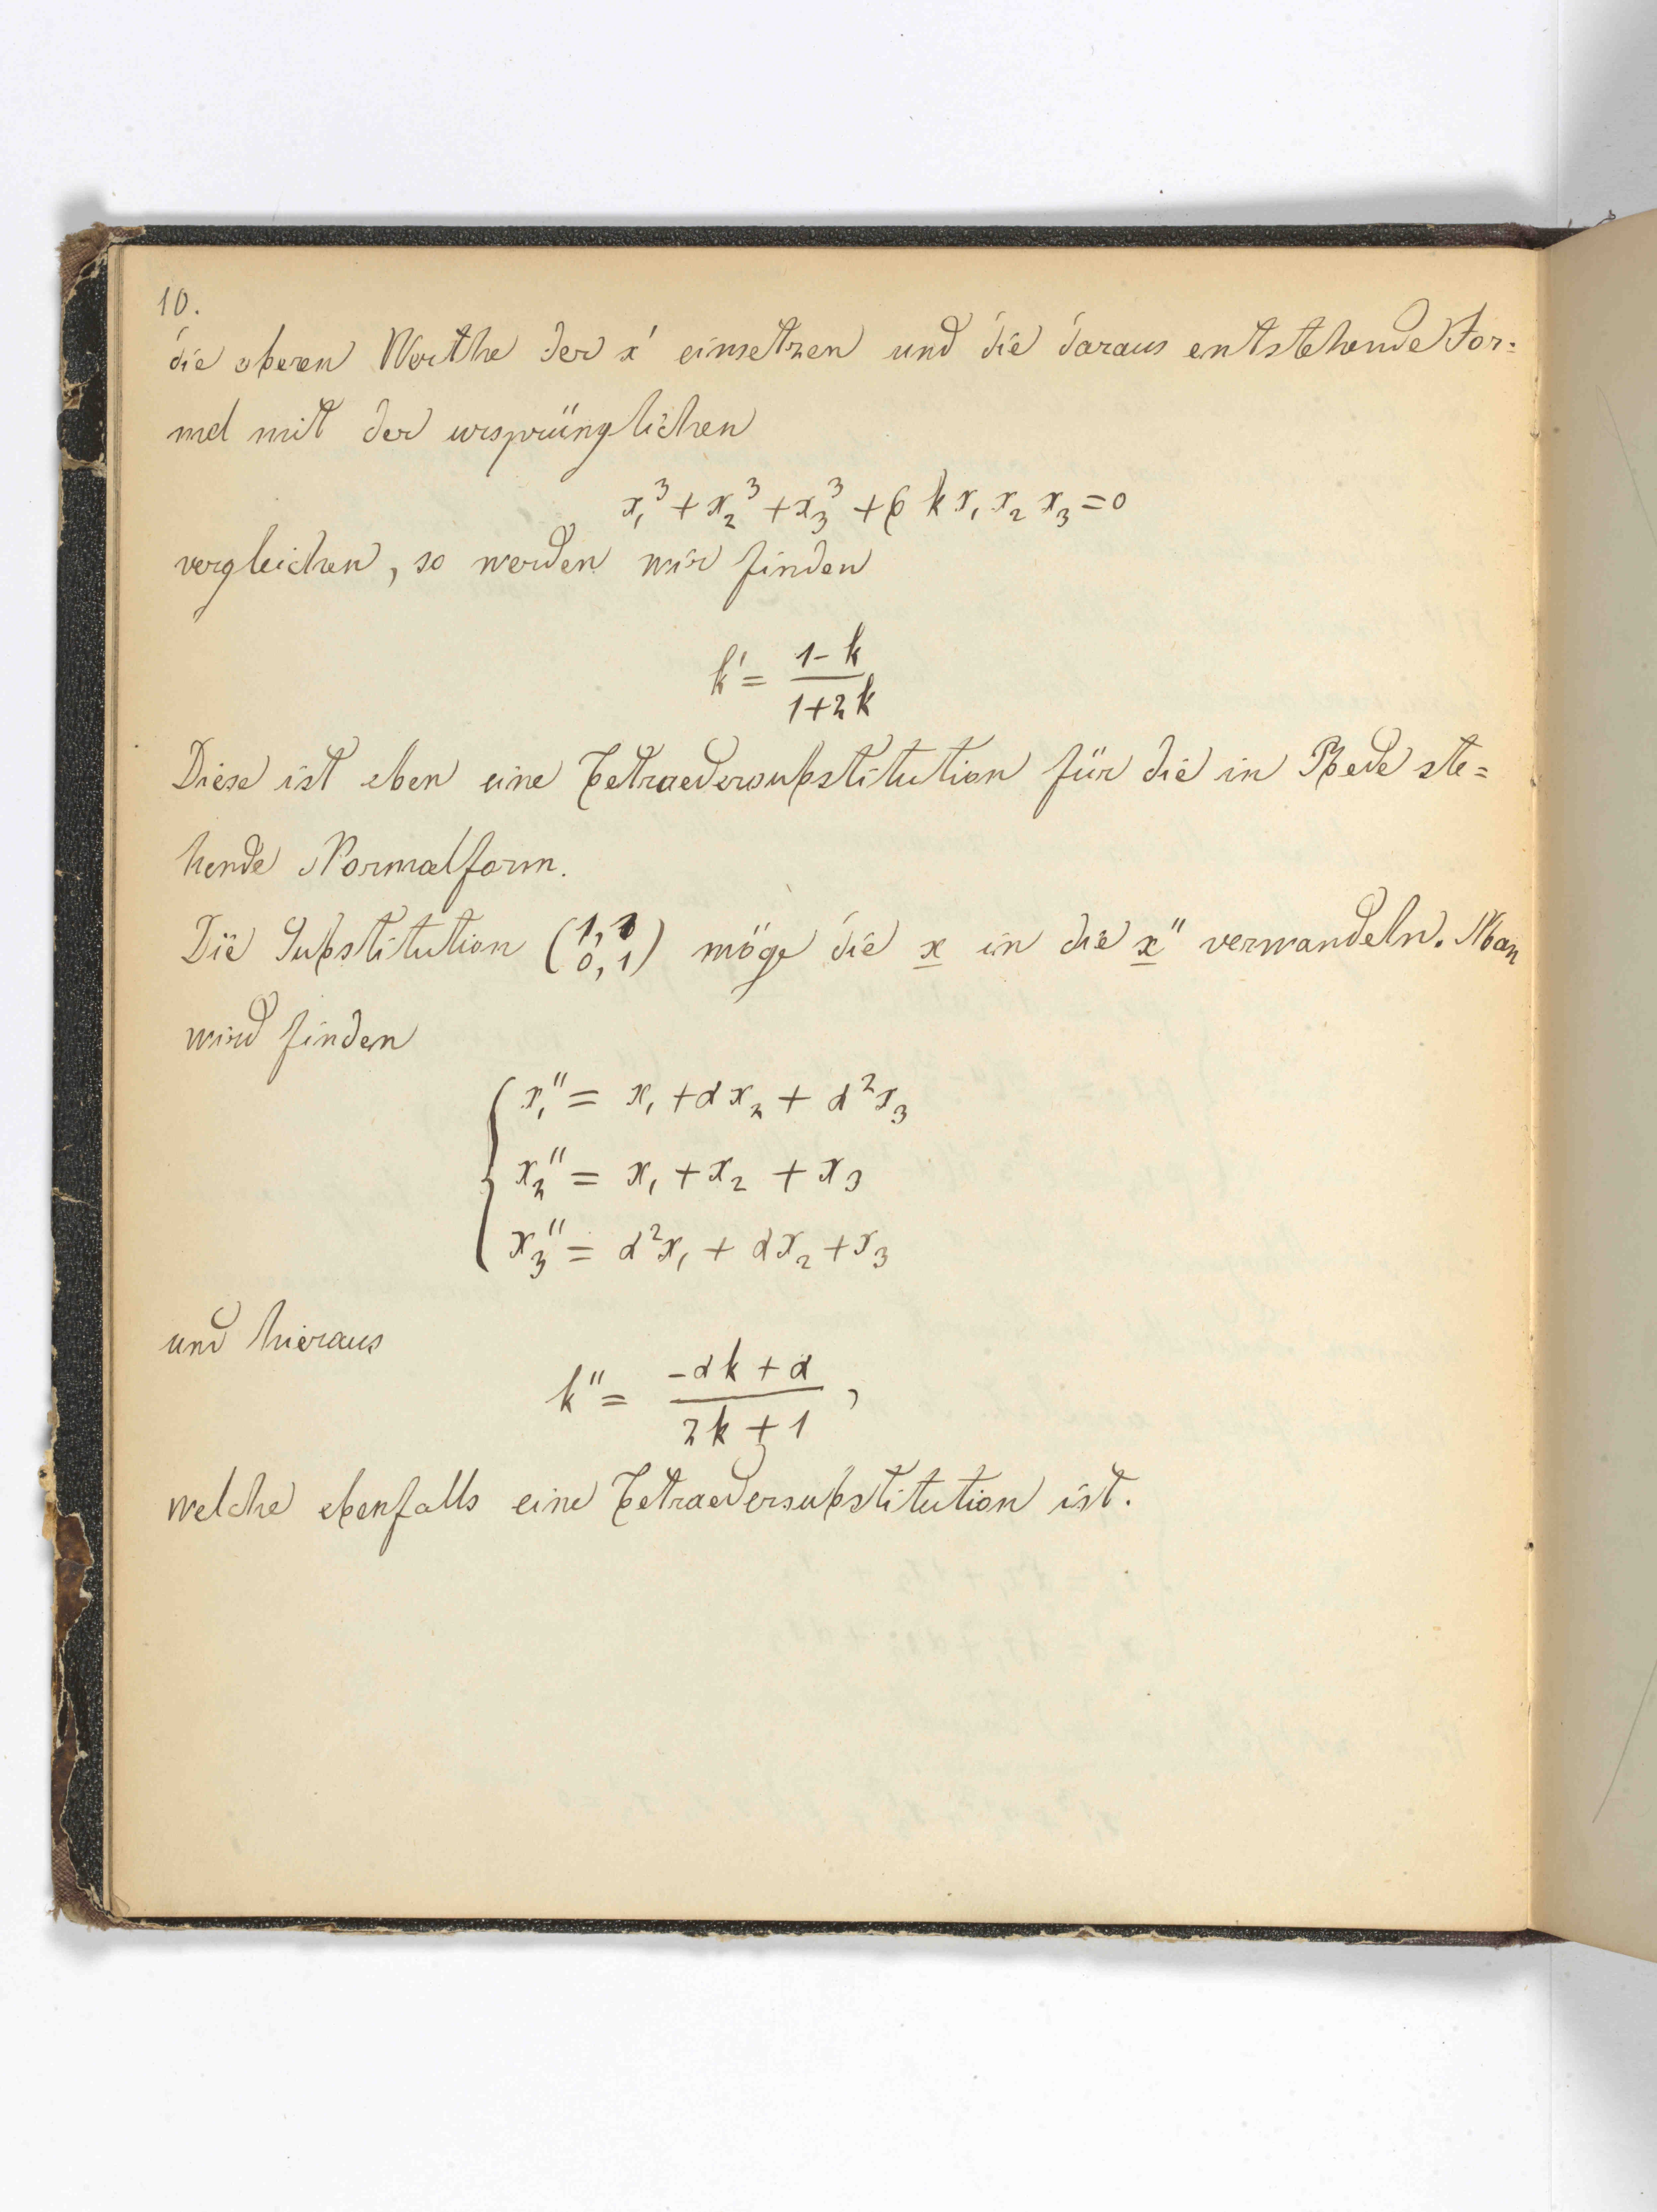 10.
die oberen Werthe der x' einsetzen und die daraus entstehende For=
mel mit der ursprünglichen
x₁³ + x₂³ + x₃³ + 6 k x₁ x₂ x₃ = 0
vergleichen, so werden wir finden
k' = (1 - k) / (1 + 2k)
Diese ist eben eine Tetraedersubstitution für die in Rede ste=
hende Normalform.
Die Substitution (1, 1 / 0, 1) möge die x in die x'' verwandeln. Man
wird finden
x₁'' = x₁ + αx₂ + α²x₃
x₂'' = x₁ + x₂ + x₃
x₃'' = α²x₁ + αx₂ + x₃
und hieraus
k'' = (-αk + α) / (2k + 1),
welche ebenfalls eine Tetraedersubstitution ist.